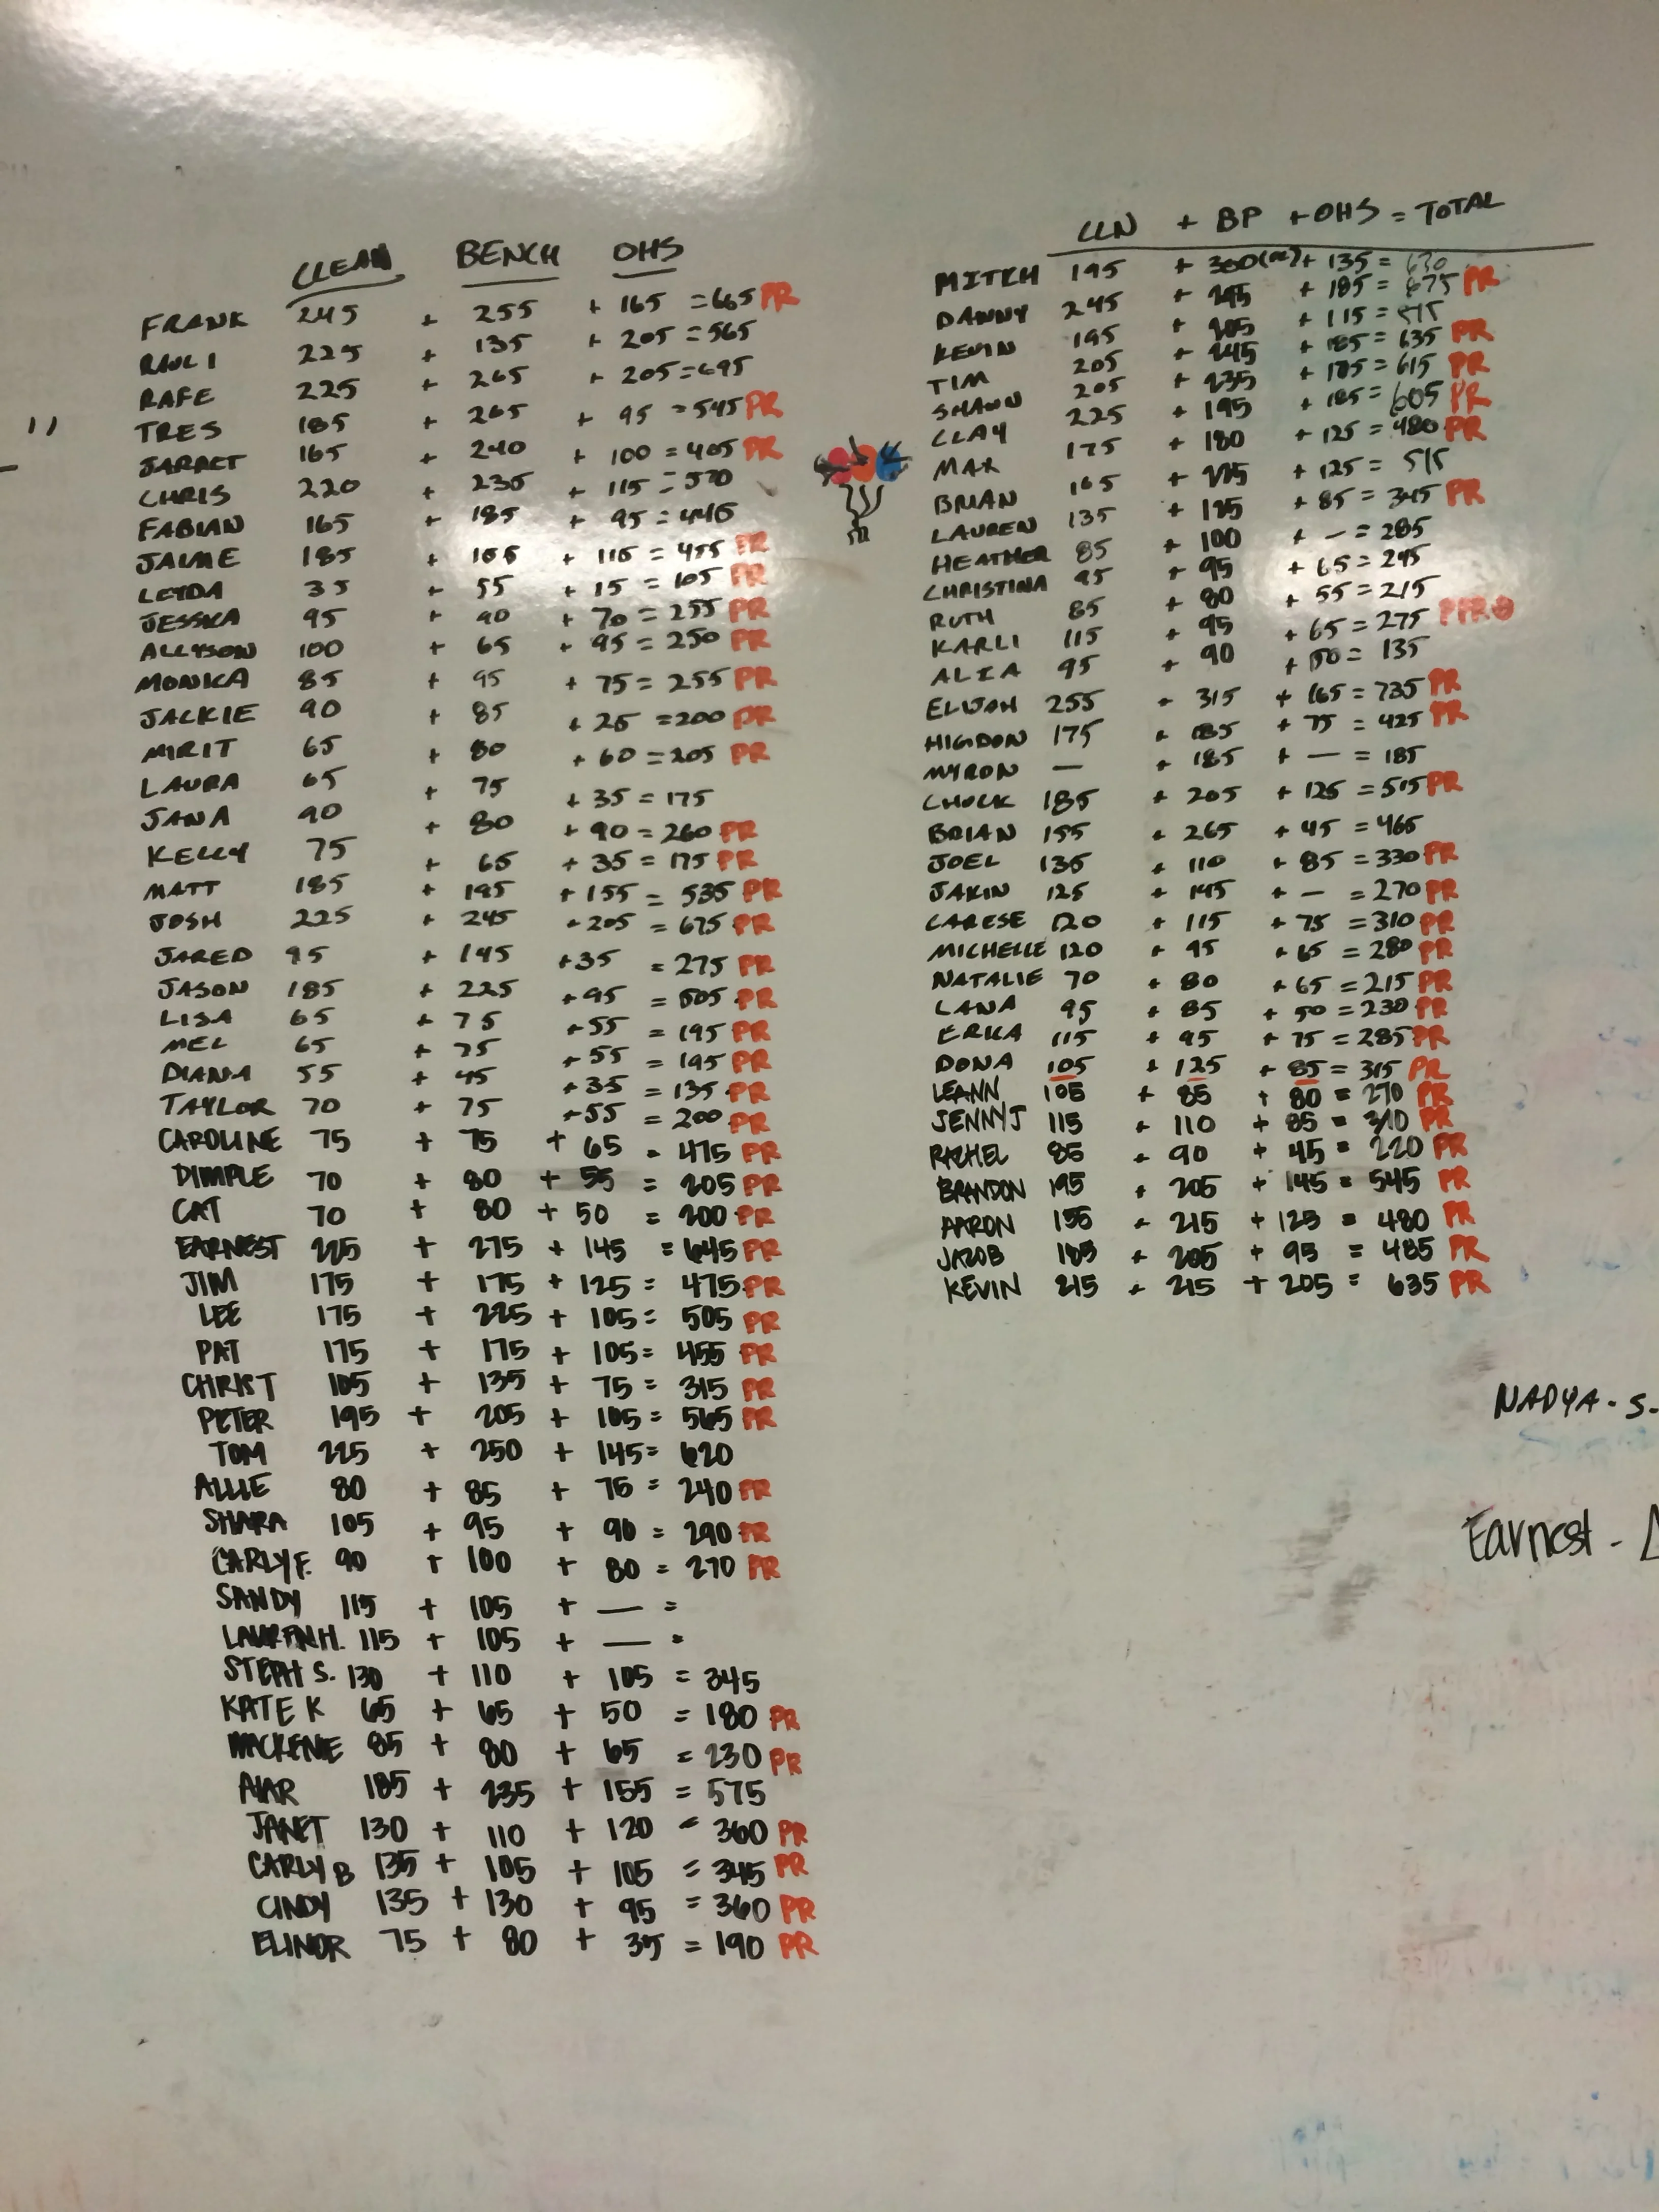 CLEAN BENCH OHS
FRANK 245 + 255 + 165 = 665 PR
RAUL I 225 + 135 + 205 = 565
RAFE 225 + 265 + 205 = 695
TRES 185 + 265 + 95 = 545 PR
JARRET 165 + 240 + 100 = 405 PR
CHRIS 220 + 235 + 115 = 570
FABIAN 165 + 185 + 95 = 445
JAIME 185 + 155 + 115 = 455 PR
LEYDA 35 + 55 + 15 = 105 PR
JESSICA 95 + 90 + 70 = 255 PR
ALLYSON 100 + 65 + 95 = 250 PR
MONICA 85 + 95 + 75 = 255 PR
JACKIE 90 + 85 + 25 = 200 PR
MIRIT 65 + 80 + 60 = 205 PR
LAURA 65 + 75 + 35 = 175
JANA 90 + 80 + 90 = 260 PR
KELLY 75 + 65 + 35 = 175 PR
MATT 185 + 195 + 155 = 535 PR
JOSH 225 + 245 + 205 = 675 PR
JARED 95 + 145 + 35 = 275 PR
JASON 185 + 225 + 95 = 505 PR
LISA 65 + 75 + 55 = 195 PR
MEL 65 + 75 + 55 = 195 PR
DIANA 55 + 45 + 35 = 135 PR
TAYLOR 70 + 75 + 55 = 200 PR
CAROLINE 75 + 75 + 65 = 475 PR
DIMPLE 70 + 80 + 55 = 205 PR
CAT 70 + 80 + 50 = 200 PR
EARNEST 225 + 275 + 145 = 645 PR
JIM 175 + 175 + 125 = 475 PR
LEE 175 + 225 + 105 = 505 PR
PAT 175 + 175 + 105 = 455 PR
CHRIS T 105 + 135 + 75 = 315 PR
PETER 195 + 205 + 165 = 565 PR
TOM 225 + 250 + 145 = 620
ALLIE 80 + 85 + 75 = 240 PR
SHARA 105 + 95 + 90 = 290 PR
CARLY F. 90 + 100 + 80 = 270 PR
SANDY 115 + 105 + — =
LAUREN H. 115 + 105 + — =
STEPH S. 130 + 110 + 105 = 345
KATE K 65 + 65 + 50 = 180 PR
MACKENZIE 85 + 80 + 65 = 230 PR
185 + 235 + 155 = 575
JANET 130 + 110 + 120 = 360 PR
CARLY B 135 + 105 + 105 = 345 PR
CINDY 135 + 130 + 95 = 360 PR
ELINOR 75 + 80 + 35 = 190 PR
CLN + BP + OHS = TOTAL
MITCH 195 + 300 + 135 = 630
DANNY 245 + 245 + 185 = 675 PR
KEVIN 195 + 205 + 115 = 515
TIM 205 + 245 + 185 = 635 PR
SHAWN 205 + 235 + 175 = 615 PR
CLAY 225 + 195 + 185 = 605 PR
MAX 175 + 180 + 125 = 480 PR
BRIAN 165 + 225 + 125 = 515
LAUREN 135 + 125 + 85 = 345 PR
HEATHER 85 + 100 + — = 285
CHRISTINA 85 + 95 + 65 = 245
RUTH 85 + 80 + 55 = 215
KARLI 115 + 95 + 65 = 275 PR
ALIA 95 + 90 + 50 = 135
ELIJAH 255 + 315 + 165 = 735 PR
HIGDON 175 + 185 + 75 = 425 PR
MYRON — + 185 + — = 185
CHUCK 185 + 205 + 125 = 515 PR
BRIAN 155 + 265 + 45 = 465
JOEL 135 + 110 + 85 = 330 PR
JAKIN 125 + 145 + — = 270 PR
CARESE 120 + 115 + 75 = 310 PR
MICHELLE 120 + 95 + 65 = 280 PR
NATALIE 70 + 80 + 65 = 215 PR
LANA 95 + 85 + 50 = 230 PR
ERKA 115 + 95 + 75 = 285 PR
DONA 105 + 125 + 85 = 315 PR
LEANN 105 + 85 + 80 = 270 PR
JENNY J 115 + 110 + 85 = 310 PR
RACHEL 85 + 90 + 45 = 220 PR
BRANDON 195 + 205 + 145 = 545 PR
AARON 155 + 215 + 125 = 480 PR
JACOB 185 + 205 + 95 = 485 PR
KEVIN 215 + 215 + 205 = 635 PR
NADYA - S.
Earnest -